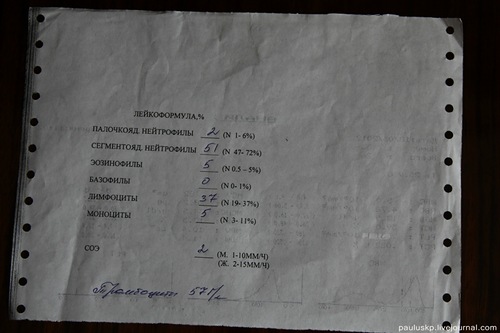 ЛЕЙКОФОРМУЛА,%
ПАЛОЧКОЯД. НЕЙТРОФИЛЫ 2 (N 1- 6%)
СЕГМЕНТОЯД. НЕЙТРОФИЛЫ 51 (N 47- 72%)
ЭОЗИНОФИЛЫ 5 (N 0.5 – 5%)
БАЗОФИЛЫ 0 (N 0- 1%)
ЛИМФОЦИТЫ 37 (N 19- 37%)
МОНОЦИТЫ 5 (N 3- 11%)
СОЭ 2 (М. 1-10ММ/Ч)
(Ж. 2-15ММ/Ч)
Тромбоциты 57 Г/л
pauluskp.livejournal.com